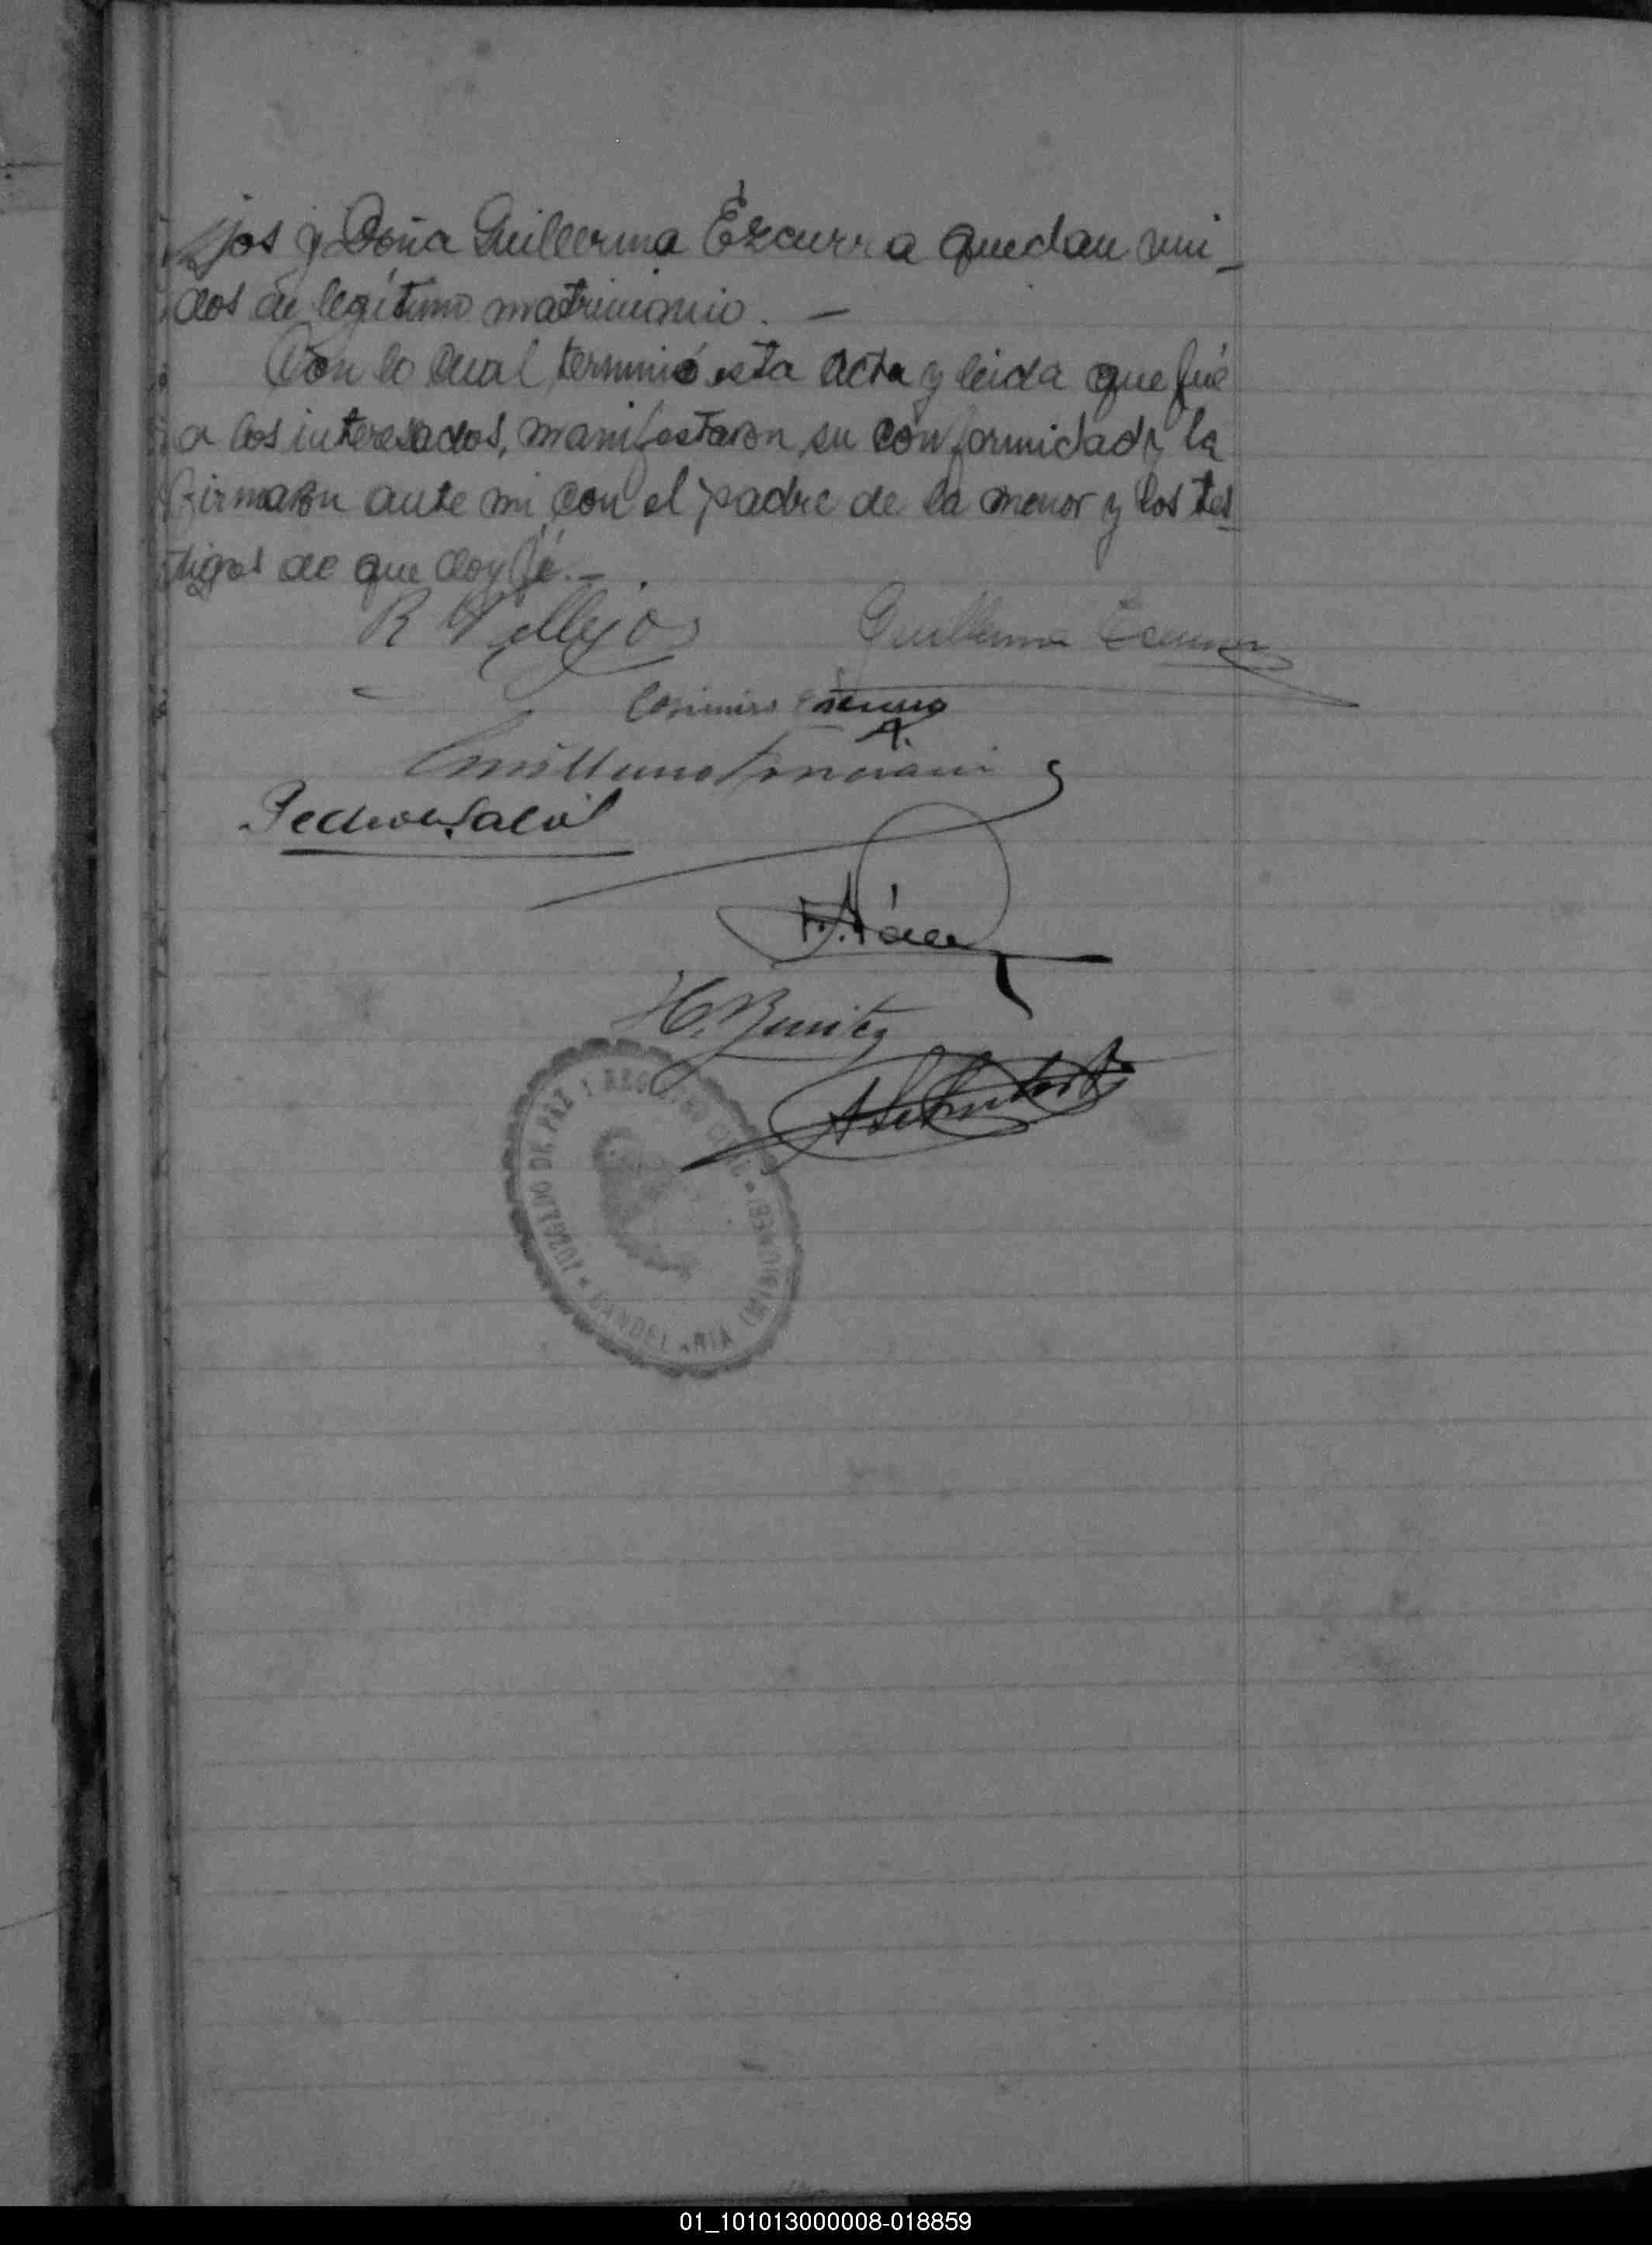 jos y Doña Guillerma Ezcurra quedan uni_
dos en legítimo matrimonio. —
Con lo cual terminó esta acta y leida que fué
a los interesados, manifestaron su conformidad y la
firmaron ante mi con el padre de la menor y los tes
tigos de que doy fé.—
R Vallejos Guillerma Ezcurra
Casimiro Ezcurra
Pedro
H. Benitez
JUZGADO DE PAZ Y REGISTRO CIVIL • CANDELARIA (MISIONES)
01_101013000008-018859